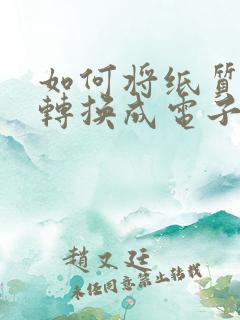 如何将纸質
轉换成電子
趙又廷
未经同意禁止转载